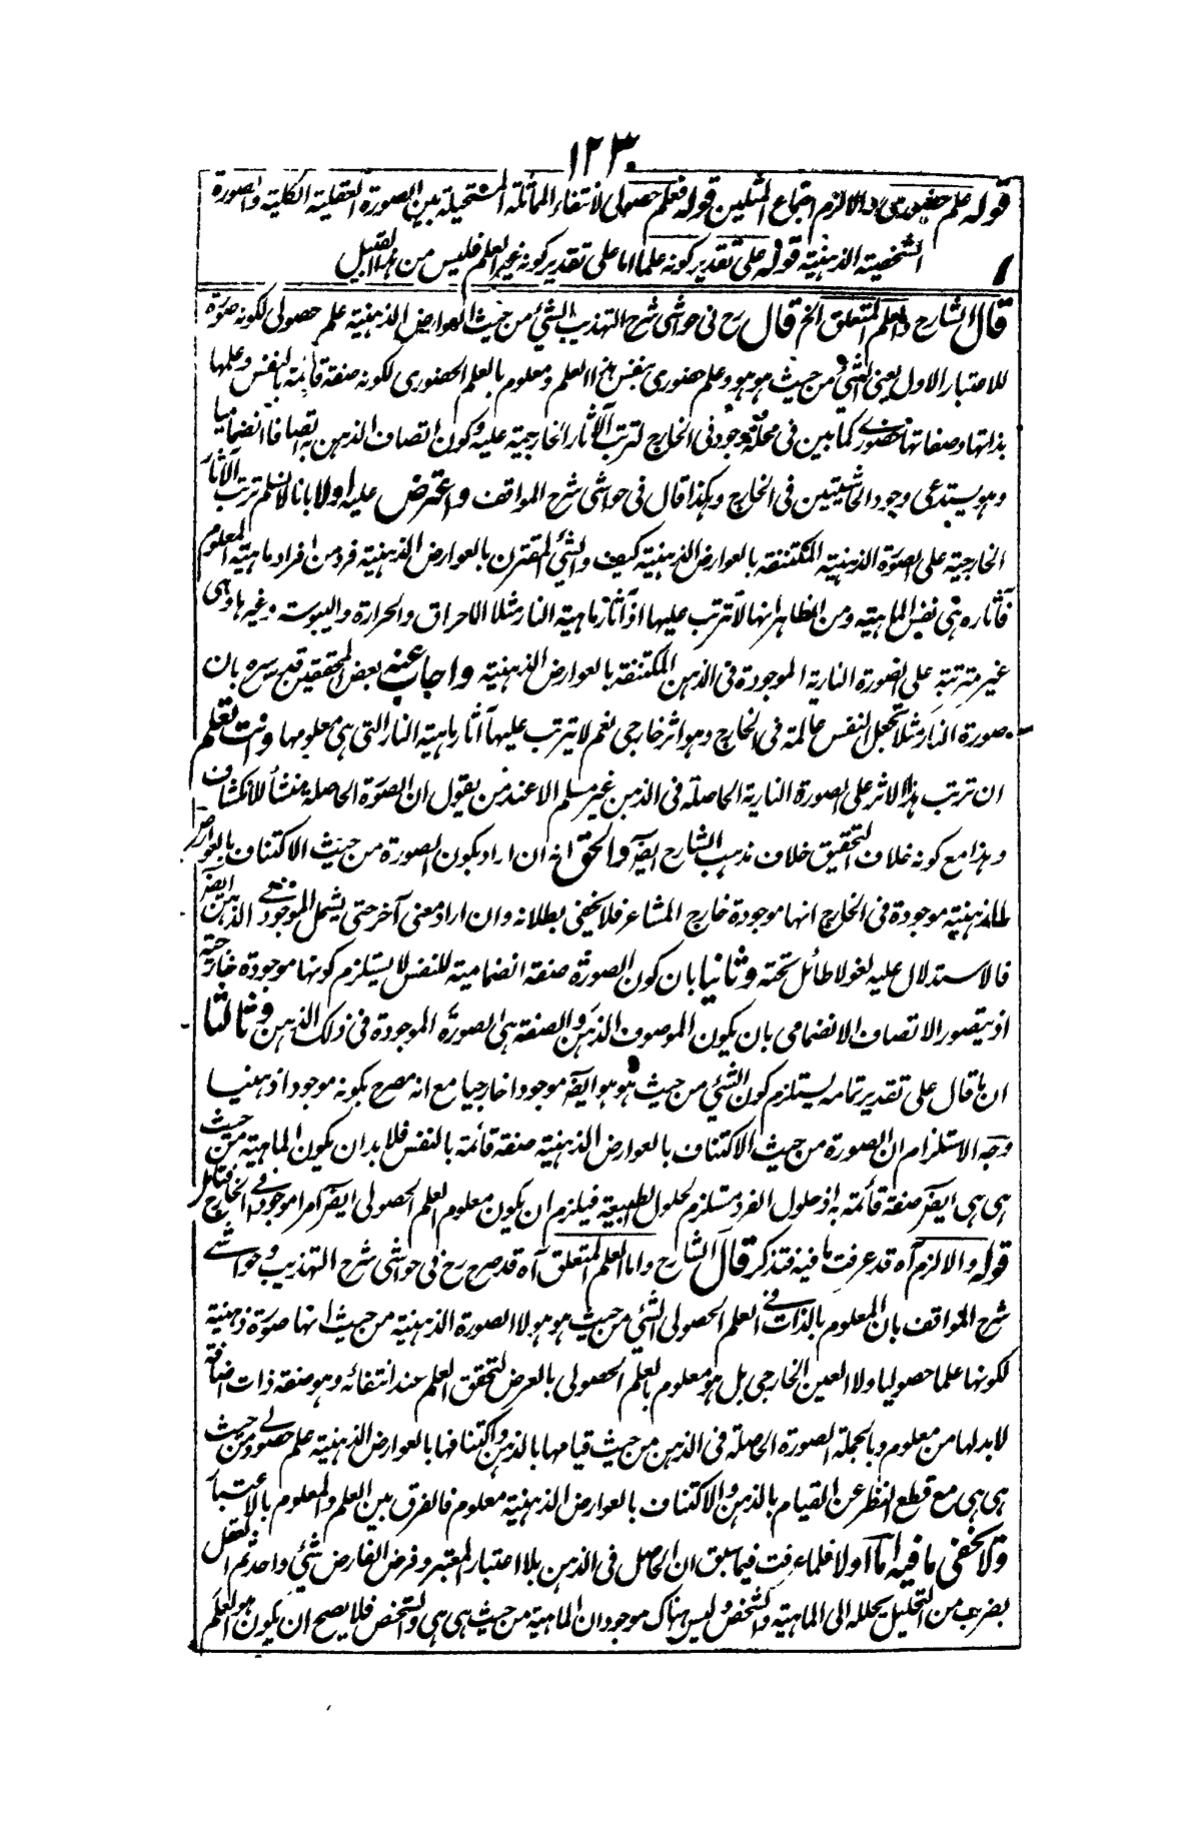 ١٢٣
قوله علم حضوری والالزم اجتماع المثلین قوله فعلم حصولی لانتفاء المماثلة المستحیلة بین الصورة العقلیة الکلیة والصورة
الشخصیة الذهنیة قوله علی تقدیر کونه علما اما علی تقدیر کونه غیر العلم فلیس من هذا القبیل
قال الشارح والعلم المتعلق الخ قال رح فی حواشی شرح التهذیب الشئ من حیث العوارض الذهنیة علم حصولی لکونه صورة
للاعتبار الاول یعنی الشئ من حیث هو هو وعلم حضوری بنفس هذا العلم ومعلوم بالعلم الحضوری لکونه صفة قائمة بالنفس وعلمها
بذاتها وصفاتها حضوری کما بین فی محله وموجود فی الخارج لترتب الآثار الخارجیة علیه وکون اتصاف الذهن به اتصافا انضمامیا
وهو یستدعی وجود الحاشیتین فی الخارج وهکذا قال فی حواشی شرح المواقف واعترض علیه اولا بانا لا نسلم ترتب الآثار
الخارجیة علی الصورة الذهنیة المکتنفة بالعوارض الذهنیة کیف والشئ المقترن بالعوارض الذهنیة فرد من افراد ماهیة المعلوم
فآثاره هی نفس الماهیة ومن الظاهر انها لا تترتب علیها اذ آثار ماهیة النار مثلا الاحراق والحرارة والیبوسة وغیرها وهی
غیر مترتبة علی الصورة الناریة الموجودة فی الذهن المکتنفة بالعوارض الذهنیة واجاب عنه بعض المحققین قدس سره بان
صورة النار مثلا تجعل النفس عالمة فی الخارج وهو اثر خارجی نعم لا یترتب علیها آثار ماهیة النار التی هی معلومها وانت تعلم
ان ترتب هذا الاثر علی الصورة الناریة الحاصلة فی الذهن غیر مسلم الا عند من یقول ان الصورة الحاصلة منشأ للانکشاف
وهذا مع کونه خلاف التحقیق خلاف مذهب الشارح ایضا والحق انه ان اراد بکون الصورة من حیث الاکتناف بالعوارض
الذهنیة موجودة فی الخارج انها موجودة خارج المشاعر فلا یخفی بطلانه وان اراد معنی آخر حتی یشمل الموجود الذهنی ایضا
فالاستدلال علیه لغو لا طائل تحته وثانیا بان کون الصورة صفة انضمامیة للنفس لا یستلزم کونها موجودة خارجیة
اذ یتصور الاتصاف الانضمامی بان یکون الموصوف الذهن والصفة هی الصورة الموجودة فی ذلک الذهن وثالثا
ان ما قال علی تقدیر تمامه یستلزم کون الشئ من حیث هو هو ایضا موجودا خارجیا مع انه مصرح بکونه موجودا ذهنیا
وجه الاستلزام ان الصورة من حیث الاکتناف بالعوارض الذهنیة صفة قائمة بالنفس فلا بد ان یکون الماهیة من حیث
هی هی ایضا صفة قائمة به اذ حلول الفرد مستلزم لحلول الطبیعة فیلزم ان یکون معلوم العلم الحصولی ایضا امرا موجودا فی الخارج فتامل
قوله والالزم آه قد عرفت ما فیه فتذکر قال الشارح واما العلم المتعلق آه قد صرح رح فی حواشی شرح التهذیب وحواشی
شرح المواقف بان المعلوم بالذات فی العلم الحصولی الشئ من حیث هو هو لا الصورة الذهنیة من حیث انها صورة ذهنیة
لکونها علما حصولیا ولا العین الخارجی بل هو معلوم بالعلم الحصولی بالعرض لتحقق العلم عند انتفائه وهو صفة ذات اضافة
لابد لها من معلوم وبالجملة الصورة الحاصلة فی الذهن من حیث قیامها بالذهن واکتنافها بالعوارض الذهنیة علم حصولی ومن حیث
هی هی مع قطع النظر عن القیام بالذهن والاکتناف بالعوارض الذهنیة معلوم فالفرق بین العلم والمعلوم بالاعتبار
ولا یخفی ما فیه اما اولا فلما عرفت فیما سبق ان الحاصل فی الذهن بلا اعتبار المعتبر وفرض الفارض شئ واحد ثم العقل
بضرب من التحلیل یحلله الی الماهیة والتشخص ولیس هناک موجودان الماهیة من حیث هی هی والتشخص فلا یصح ان یکون هو العلم